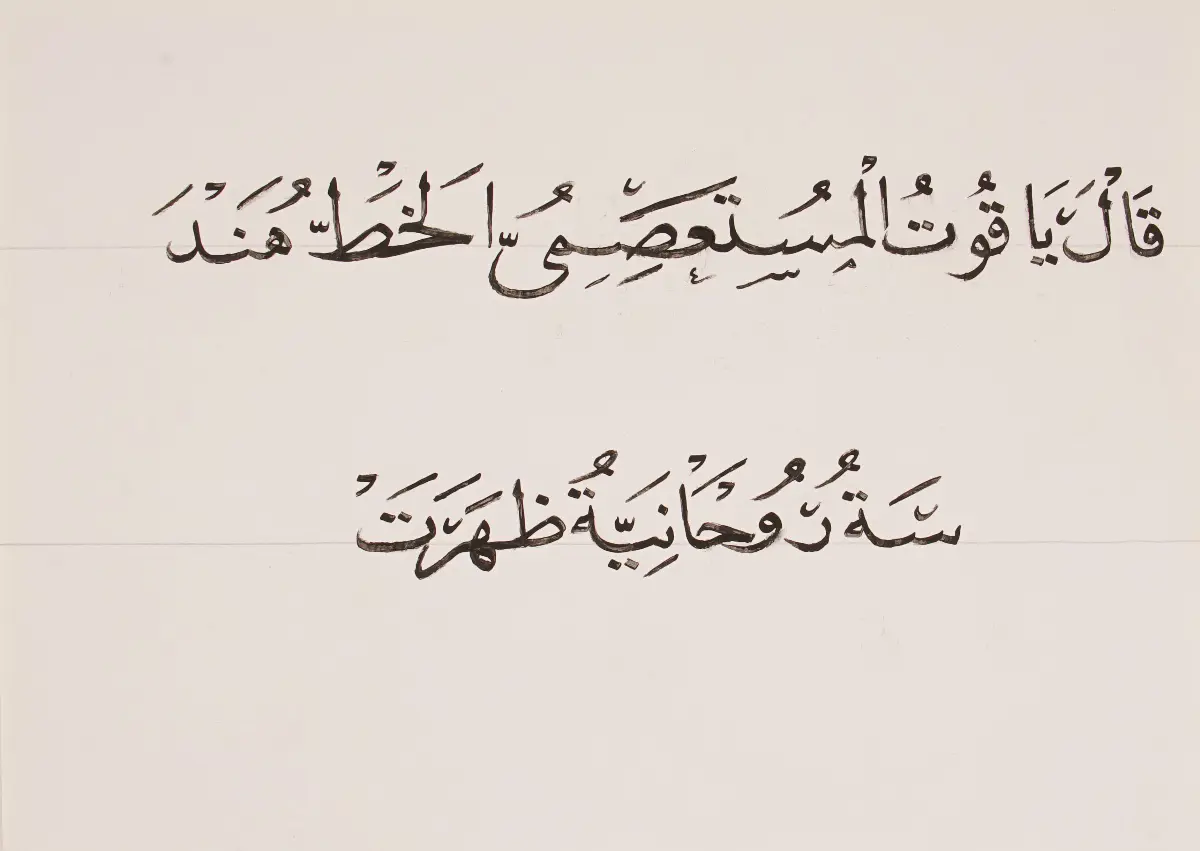 قَالَ يَاقُوتُ الْمُسْتَعْصِمِيُّ الْخَطُّ هَنْدَ
سَةٌ رُّوحَانِيَّةٌ ظَهَرَتْ